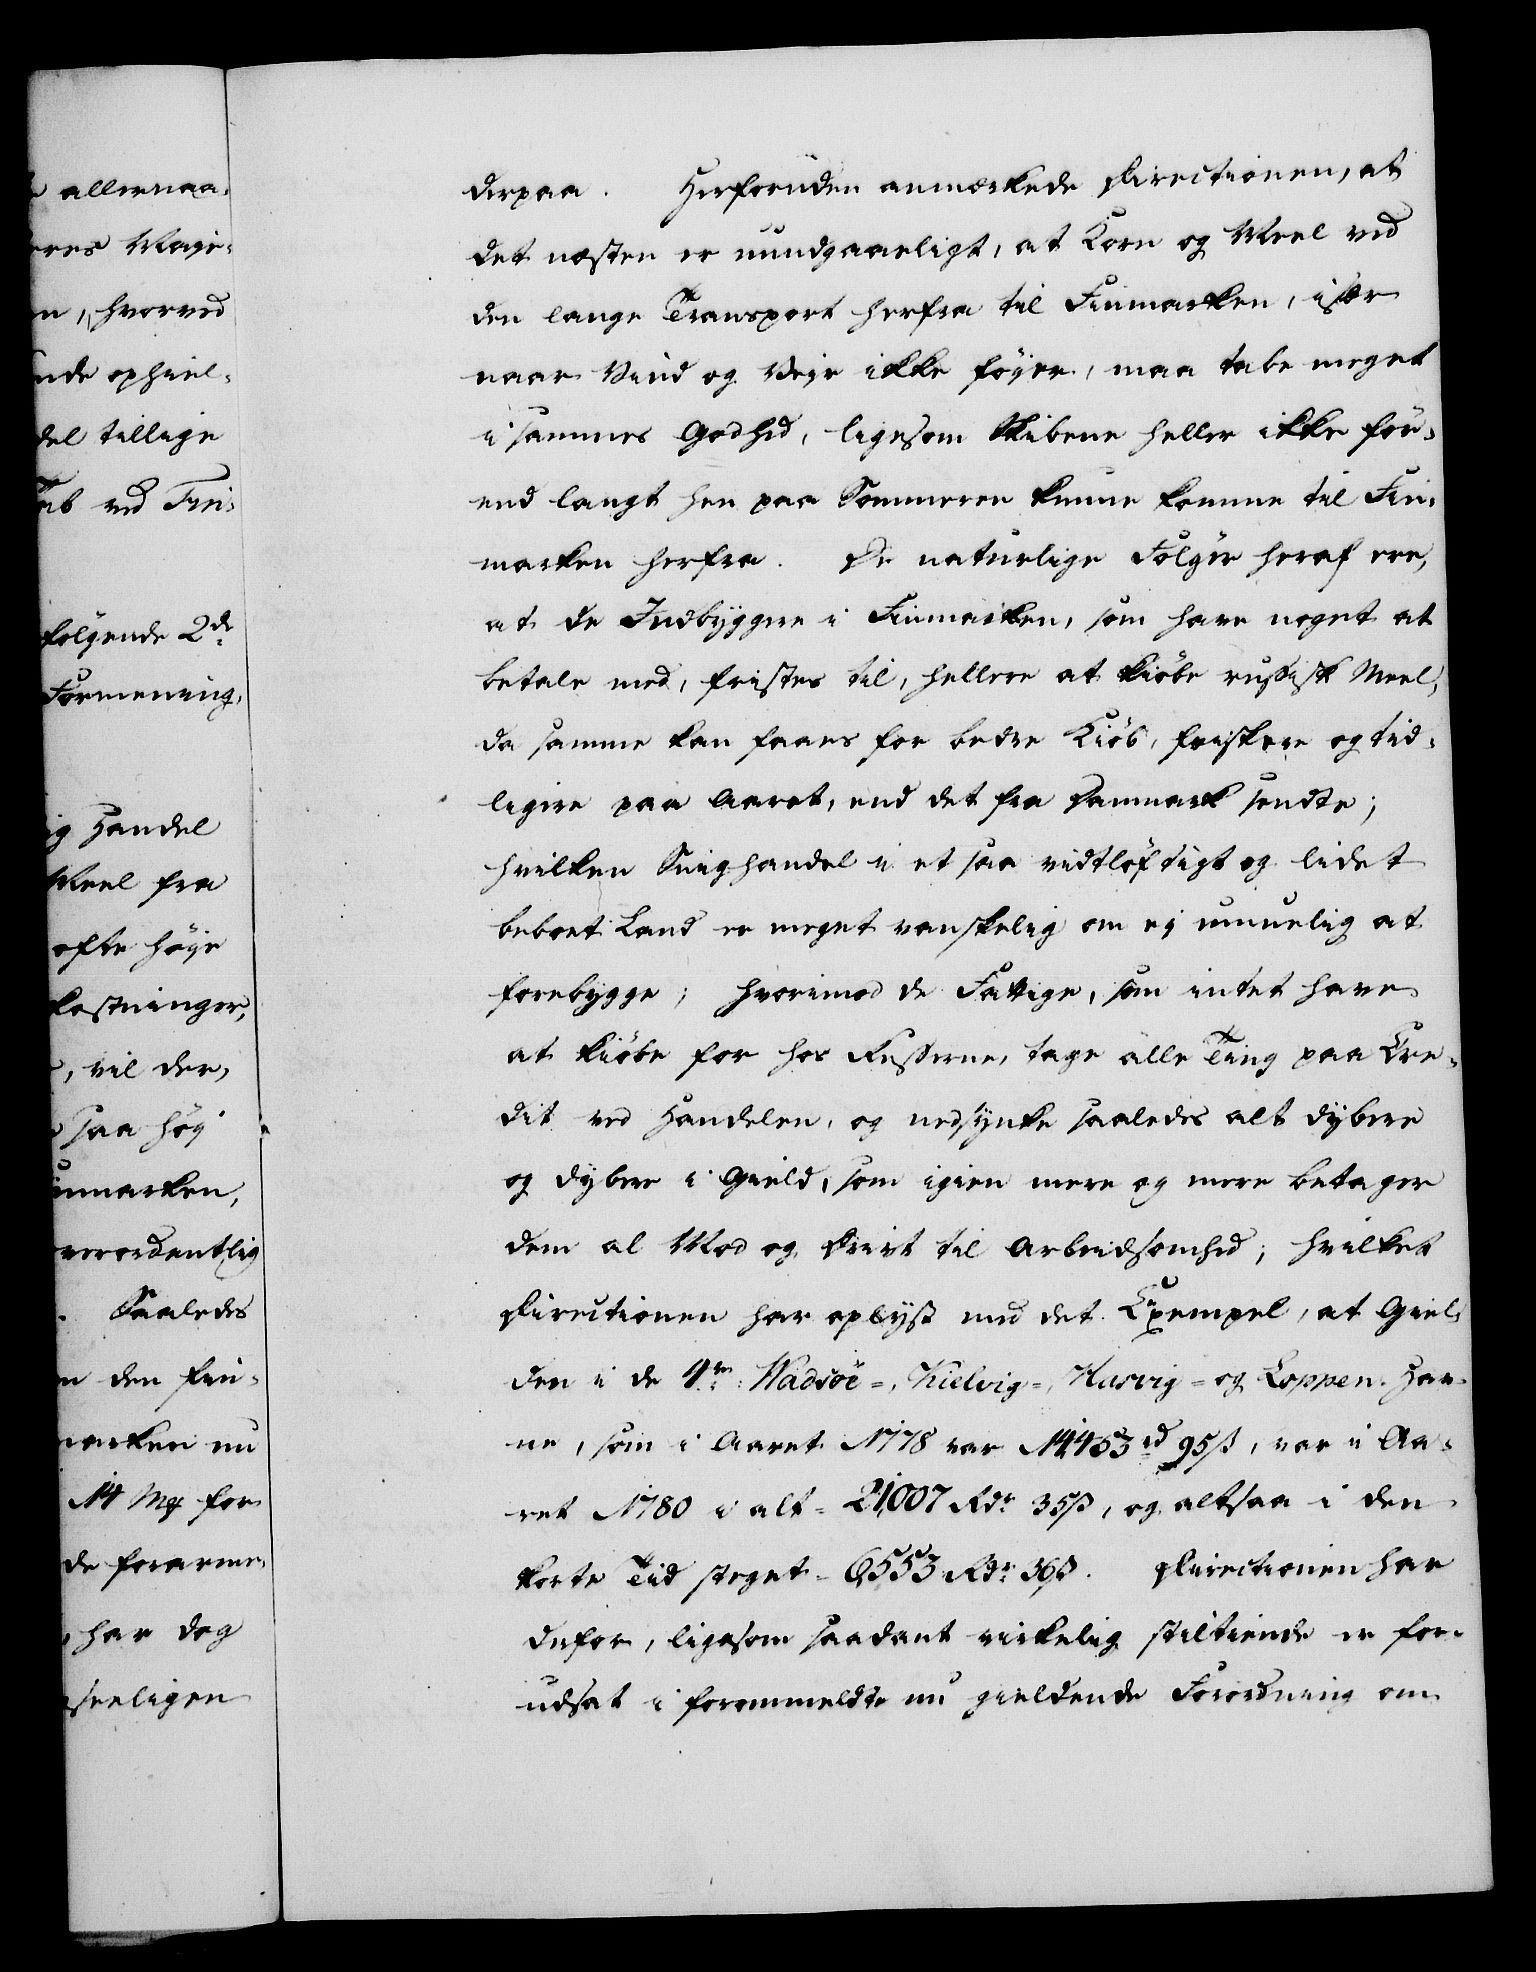 allernaa-
eres Maje-
n, hvorved
nde ophiel-
del tillige
Tab ved Fin-
følgende 2de
Formening,
ig Handel
Meel fra
ofte høye
kostninger,
, vil der,
saa høy
inmarken,
verordentlig
. Saaledes
n den fin-
marken nu
14 Mk for
de forarme-
, har dog
seeligen
derpaa. Herforuden anmærkede Directionen, at
det næsten er uundgaaeligt, at Korn og Meel ved
den lange Transport herfra til Finmarken, især
naar Vind og Vejr ikke føyer, maa tabe meget
i sammes Godhed, ligesom Skibene heller ikke før-
end langt hen paa Sommeren kunne komme til Fin-
marken herfra. De naturlige Følger heraf ere,
at de Indbyggere i Finmarken, som have noget at
betale med, fristes til, hellere at kiøbe russisk Meel,
da samme kan faaes for bedre Kiøb, friskere og tid-
ligere paa Aaret, end det fra Danmark sendte;
hvilken Snighandel i et saa vidtløftigt og lidet
beboet Land er meget vanskelig om ej umuelig at
forebygge; hvorimod de Fattige, som intet have
at kiøbe for hos Russerne, tage alle Ting paa Cre-
dit ved Handelen, og nedsynke saaledes alt dybere
og dybere i Gield, som igien mere og mere betager
dem al Mod og Drivt til Arbeidsomhed; hvilket
Directionen har oplyst med det Exempel, at Giel-
den i de 4re: Wadsöe=, Kielvig=, Hasvig= og Loppen Hav-
ne, som i Aaret 1778 var 14,453 rd 95 ß, var i Aa-
ret 1780 i alt = 21,007 Rdr 35 ß, og altsaa i den
korte Tid steget = 6,553 Rdr 36 ß. Directionen har
derfor, ligesom saadant virkelig stiltiende er for-
udsat i forommeldte nu gieldende Forordning om